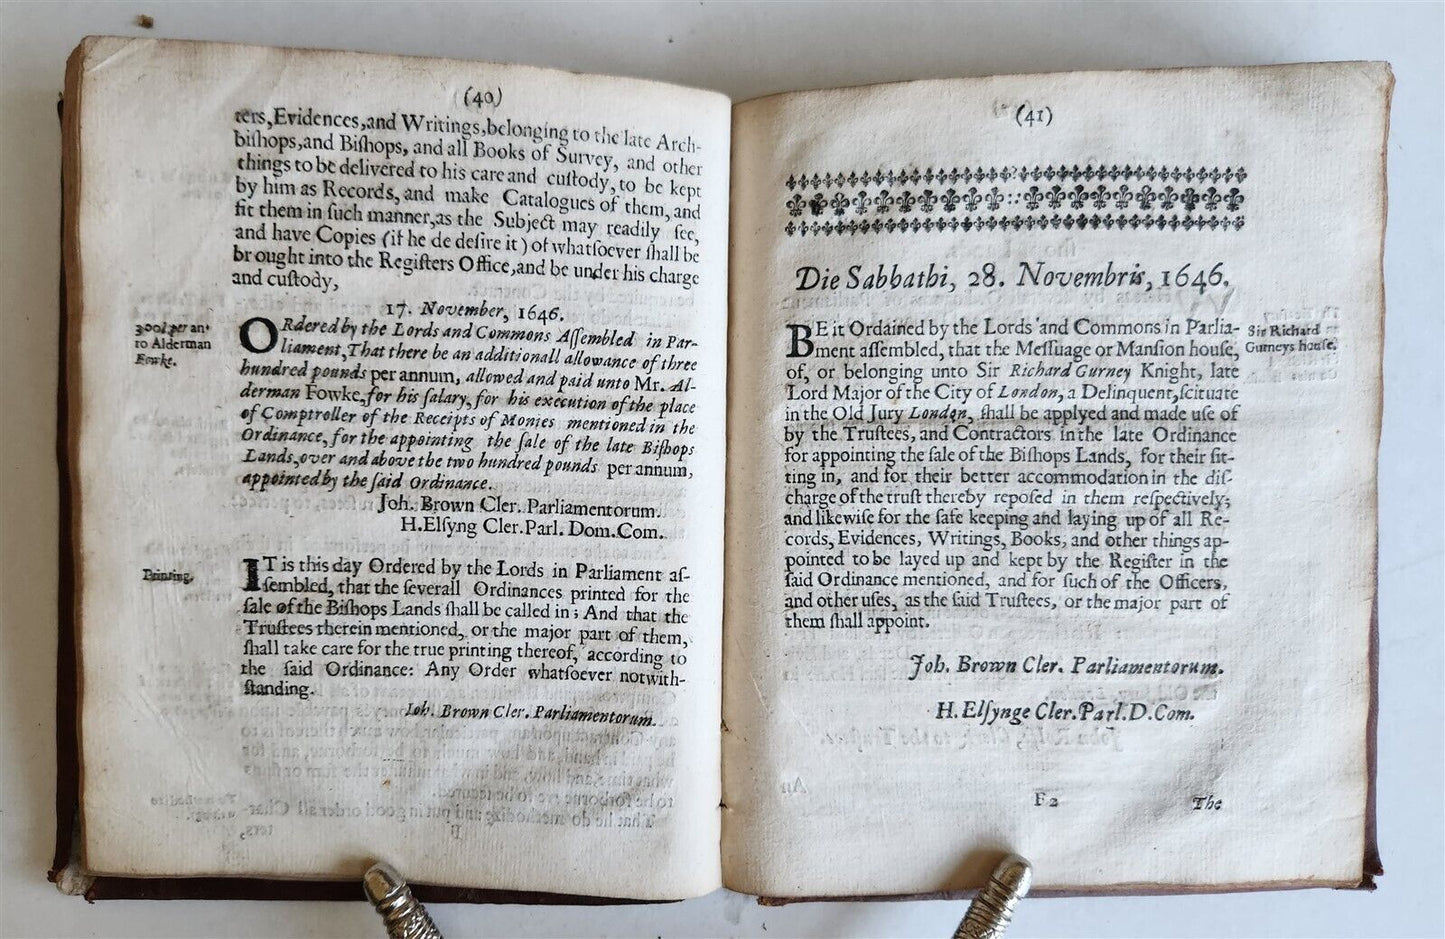 (40)
ters, Evidences, and Writings, belonging to the late Arch-
biſhops, and Biſhops, and all Books of Survey, and other
things to be delivered to his care and cuſtody, to be kept
by him as Records, and make Catalogues of them, and
fit them in ſuch manner, as the Subject may readily ſee,
and have Copies (if he de deſire it) of whatſoever ſhall be
br ought into the Regiſters Office, and be under his charge
and cuſtody,
17. November, 1646.
300l per an•
to Alderman
Fowke.
ORdered by the Lords and Commons Aſſembled in Par-
liament, That there be an additionall allowance of three
hundred pounds per annum, allowed and paid unto Mr. Al-
derman Fowke, for his ſalary, for his execution of the place
of Comptroller of the Receipts of Monies mentioned in the
Ordinance, for the appointing the ſale of the late Biſhops
Lands, over and above the two hundred pounds per annum,
appointed by the ſaid Ordinance.
Joh. Brown Cler. Parliamentorum.
H. Elſyng Cler. Parl. Dom. Com.
Printing.
IT is this day Ordered by the Lords in Parliament aſ-
ſembled, that the ſeverall Ordinances printed for the
ſale of the Biſhops Lands ſhall be called in; And that the
Truſtees therein mentioned, or the major part of them,
ſhall take care for the true printing thereof, according to
the ſaid Ordinance: Any Order whatſoever notwith-
ſtanding.
Joh. Brown Cler. Parliamentorum.
(41)
Die Sabbathi, 28. Novembris, 1646.
BE it Ordained by the Lords and Commons in Parlia-
ment aſſembled, that the Meſſuage or Manſion houſe,
of, or belonging unto Sir Richard Gurney Knight, late
Lord Major of the City of London, a Delinquent, ſcituate
in the Old Jury London, ſhall be applyed and made uſe of
by the Truſtees, and Contractors in the late Ordinance
for appointing the ſale of the Biſhops Lands, for their ſit-
ting in, and for their better accommodation in the diſ-
charge of the truſt thereby repoſed in them reſpectively;
and likewiſe for the ſafe keeping and laying up of all Re-
cords, Evidences, Writings, Books, and other things ap-
pointed to be layed up and kept by the Regiſter in the
ſaid Ordinance mentioned, and for ſuch of the Officers,
and other uſes, as the ſaid Truſtees, or the major part of
them ſhall appoint.
Sir Richard
Gurneys houſe.
Joh. Brown Cler. Parliamentorum.
H. Elſynge Cler. Parl. D. Com.
F2
The